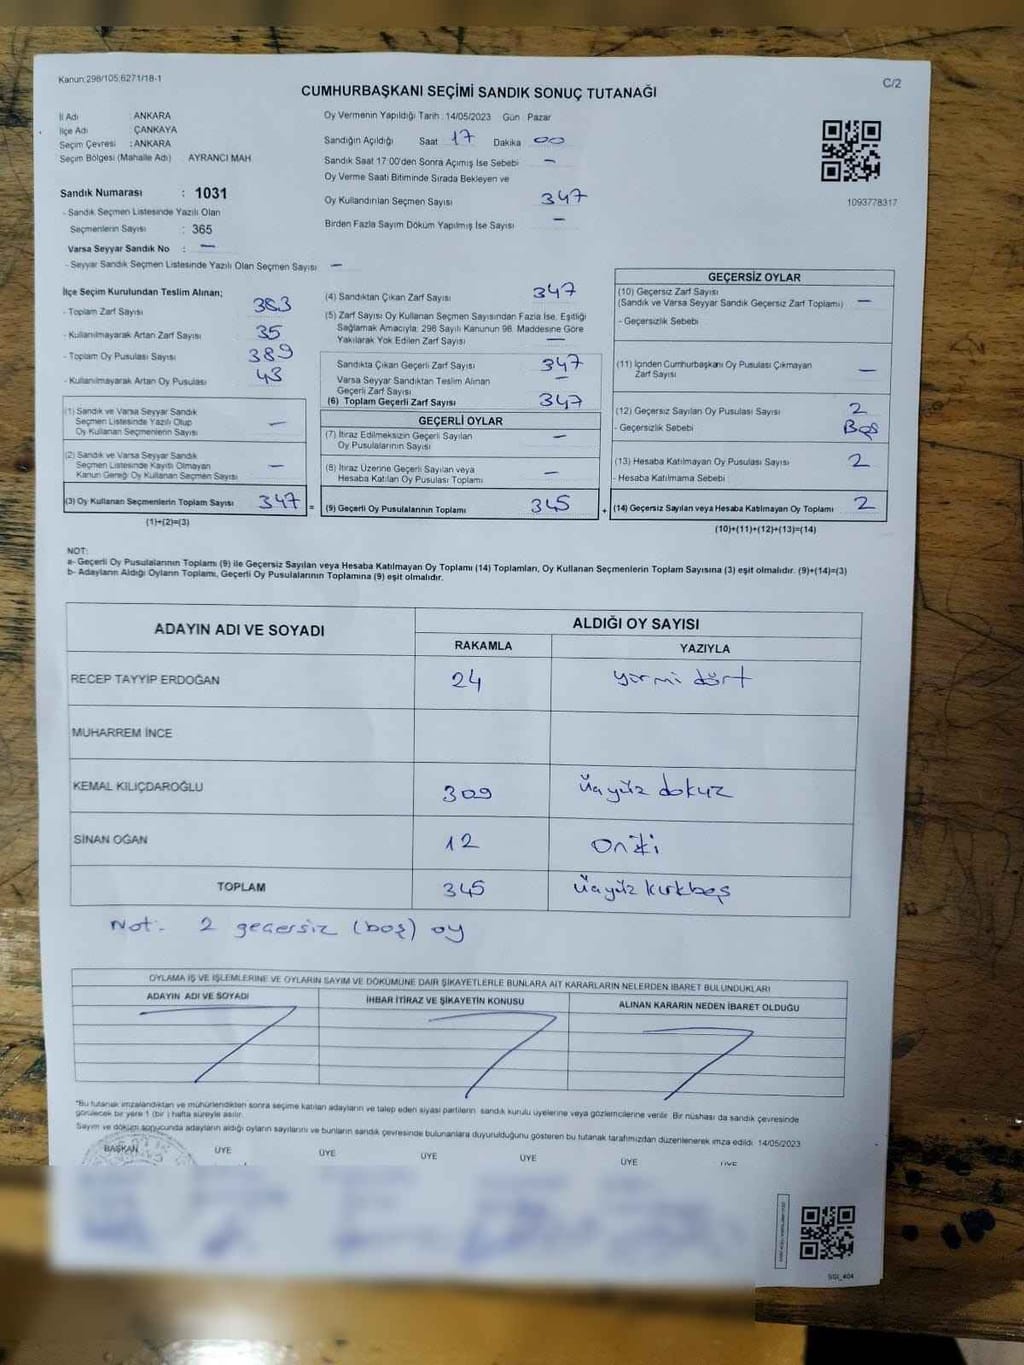 Kanun:298/105;6271/18-1
C/2
CUMHURBAŞKANI SEÇİMİ SANDIK SONUÇ TUTANAĞI
İl Adı : ANKARA
İlçe Adı : ÇANKAYA
Seçim Çevresi : ANKARA
Seçim Bölgesi (Mahalle Adı) AYRANCI MAH
Sandık Numarası : 1031
- Sandık Seçmen Listesinde Yazılı Olan
Seçmenlerin Sayısı : 365
Varsa Seyyar Sandık No : —
- Seyyar Sandık Seçmen Listesinde Yazılı Olan Seçmen Sayısı —
Oy Vermenin Yapıldığı Tarih : 14/05/2023 Gün : Pazar
Sandığın Açıldığı Saat 17 Dakika 00
Sandık Saat 17:00'den Sonra Açılmış İse Sebebi —
Oy Verme Saati Bitiminde Sırada Bekleyen ve
Oy Kullandırılan Seçmen Sayısı 347
Birden Fazla Sayım Döküm Yapılmış İse Sayısı —
1093778317
İlçe Seçim Kurulundan Teslim Alınan;
- Toplam Zarf Sayısı 383
- Kullanılmayarak Artan Zarf Sayısı 35
- Toplam Oy Pusulası Sayısı 389
- Kullanılmayarak Artan Oy Pusulası 43
(1) Sandık ve Varsa Seyyar Sandık
Seçmen Listesinde Yazılı Olup
Oy Kullanan Seçmenlerin Sayısı —
(2) Sandık ve Varsa Seyyar Sandık
Seçmen Listesinde Kayıtlı Olmayan
Kanun Gereği Oy Kullanan Seçmen Sayısı —
(3) Oy Kullanan Seçmenlerin Toplam Sayısı 347 =
(1)+(2)=(3)
(4) Sandıktan Çıkan Zarf Sayısı 347
(5) Zarf Sayısı Oy Kullanan Seçmen Sayısından Fazla İse, Eşitliği
Sağlamak Amacıyla; 298 Sayılı Kanunun 98. Maddesine Göre
Yakılarak Yok Edilen Zarf Sayısı —
Sandıkta Çıkan Geçerli Zarf Sayısı 347
Varsa Seyyar Sandıktan Teslim Alınan
Geçerli Zarf Sayısı —
(6) Toplam Geçerli Zarf Sayısı 347
GEÇERLİ OYLAR
(7) İtiraz Edilmeksizin Geçerli Sayılan
Oy Pusulalarının Sayısı —
(8) İtiraz Üzerine Geçerli Sayılan veya
Hesaba Katılan Oy Pusulası Toplamı —
(9) Geçerli Oy Pusulalarının Toplamı 345 +
GEÇERSİZ OYLAR
(10) Geçersiz Zarf Sayısı
(Sandık ve Varsa Seyyar Sandık Geçersiz Zarf Toplamı) —
- Geçersizlik Sebebi
(11) İçinden Cumhurbaşkanı Oy Pusulası Çıkmayan
Zarf Sayısı —
(12) Geçersiz Sayılan Oy Pusulası Sayısı 2
- Geçersizlik Sebebi Boş
(13) Hesaba Katılmayan Oy Pusulası Sayısı 2
- Hesaba Katılmama Sebebi
(14) Geçersiz Sayılan veya Hesaba Katılmayan Oy Toplamı 2
(10)+(11)+(12)+(13)=(14)
NOT:
a- Geçerli Oy Pusulalarının Toplamı (9) ile Geçersiz Sayılan veya Hesaba Katılmayan Oy Toplamı (14) Toplamları, Oy Kullanan Seçmenlerin Toplam Sayısına (3) eşit olmalıdır. (9)+(14)=(3)
b- Adayların Aldığı Oyların Toplamı, Geçerli Oy Pusulalarının Toplamına (9) eşit olmalıdır.
ADAYIN ADI VE SOYADI
ALDIĞI OY SAYISI
RAKAMLA YAZIYLA
RECEP TAYYİP ERDOĞAN 24 yirmi dört
MUHARREM İNCE
KEMAL KILIÇDAROĞLU 309 üçyüz dokuz
SİNAN OĞAN 12 oniki
TOPLAM 345 üçyüz kırkbeş
Not: 2 geçersiz (boş) oy
OYLAMA İŞ VE İŞLEMLERİNE VE OYLARIN SAYIM VE DÖKÜMÜNE DAİR ŞİKAYETLERLE BUNLARA AİT KARARLARIN NELERDEN İBARET BULUNDUKLARI
ADAYIN ADI VE SOYADI İHBAR İTİRAZ VE ŞİKAYETİN KONUSU ALINAN KARARIN NEDEN İBARET OLDUĞU
"Bu tutanak imzalandıktan ve mühürlendikten sonra seçime katılan adayların ve talep eden siyasi partilerin sandık kurulu üyelerine veya gözlemcilerine verilir. Bir nüshası da sandık çevresinde
görülecek bir yere 1 (bir ) hafta süreyle asılır.
Sayım ve döküm sonucunda adayların aldığı oyların sayılarını ve bunların sandık çevresinde bulunanlara duyurulduğunu gösteren bu tutanak tarafımızdan düzenlenerek imza edildi. 14/05/2023
BAŞKAN ÜYE ÜYE ÜYE ÜYE ÜYE ÜYE